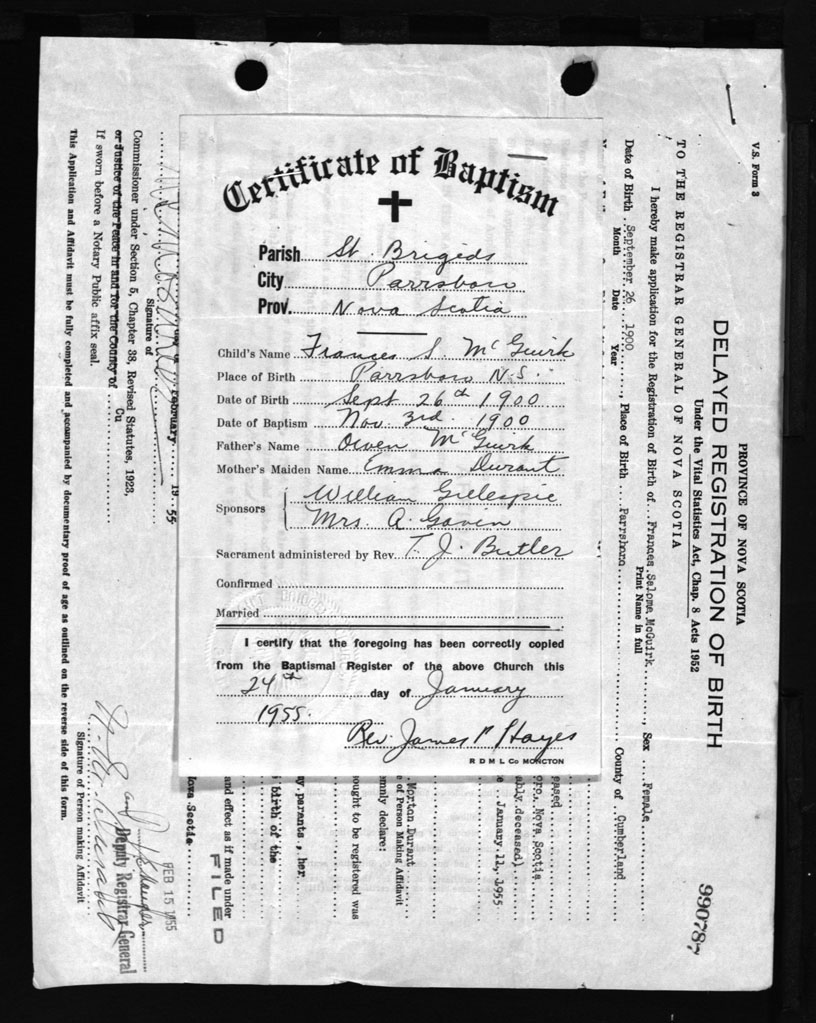 Certificate of Baptism
Parish St. Brigids
City Parrsboro
Prov. Nova Scotia
Child's Name Frances S. McGuirk
Place of Birth Parrsboro N.S.
Date of Birth Sept 26th 1900
Date of Baptism Nov. 3rd. 1900
Father's Name Owen McGuirk
Mother's Maiden Name Emma Durant
Sponsors William Gillespie
Mrs. A. Gavin
Sacrament administered by Rev. T. J. Butler
Confirmed
Married
I certify that the foregoing has been correctly copied
from the Baptismal Register of the above Church this
24th day of January
1955.
Rev. James Hayes
R D M L Co MONCTON
V.S. Form 3
PROVINCE OF NOVA SCOTIA
DELAYED REGISTRATION OF BIRTH
Under the Vital Statistics Act, Chap. 8 Acts 1952
990787
TO THE REGISTRAR GENERAL OF NOVA SCOTIA
I hereby make application for the Registration of Birth of Frances Salome McGuirk, Sex Female
Print Name in full
Date of Birth September 26 1900, Place of Birth Parrsboro County of Cumberland
Month Date Year
eased
oro, Nova Scotia
ably deceased)
January 11, 1955
Morton Durant
e of Person Making Affidavit
mnly declare:
ought to be registered was
y parents, her
birth of the
and effect as if made under
FILED
Nova Scotia
February 1955
Signature of
Commissioner under Section 5, Chapter 38, Revised Statutes, 1923,
or Justice of the Peace in and for the County of Cu
If sworn before a Notary Public affix seal.
FEB 15 1955
Deputy Registrar General
Signature of Person making Affidavit
This Application and Affidavit must be fully completed and accompanied by documentary proof of age as outlined on the reverse side of this form.